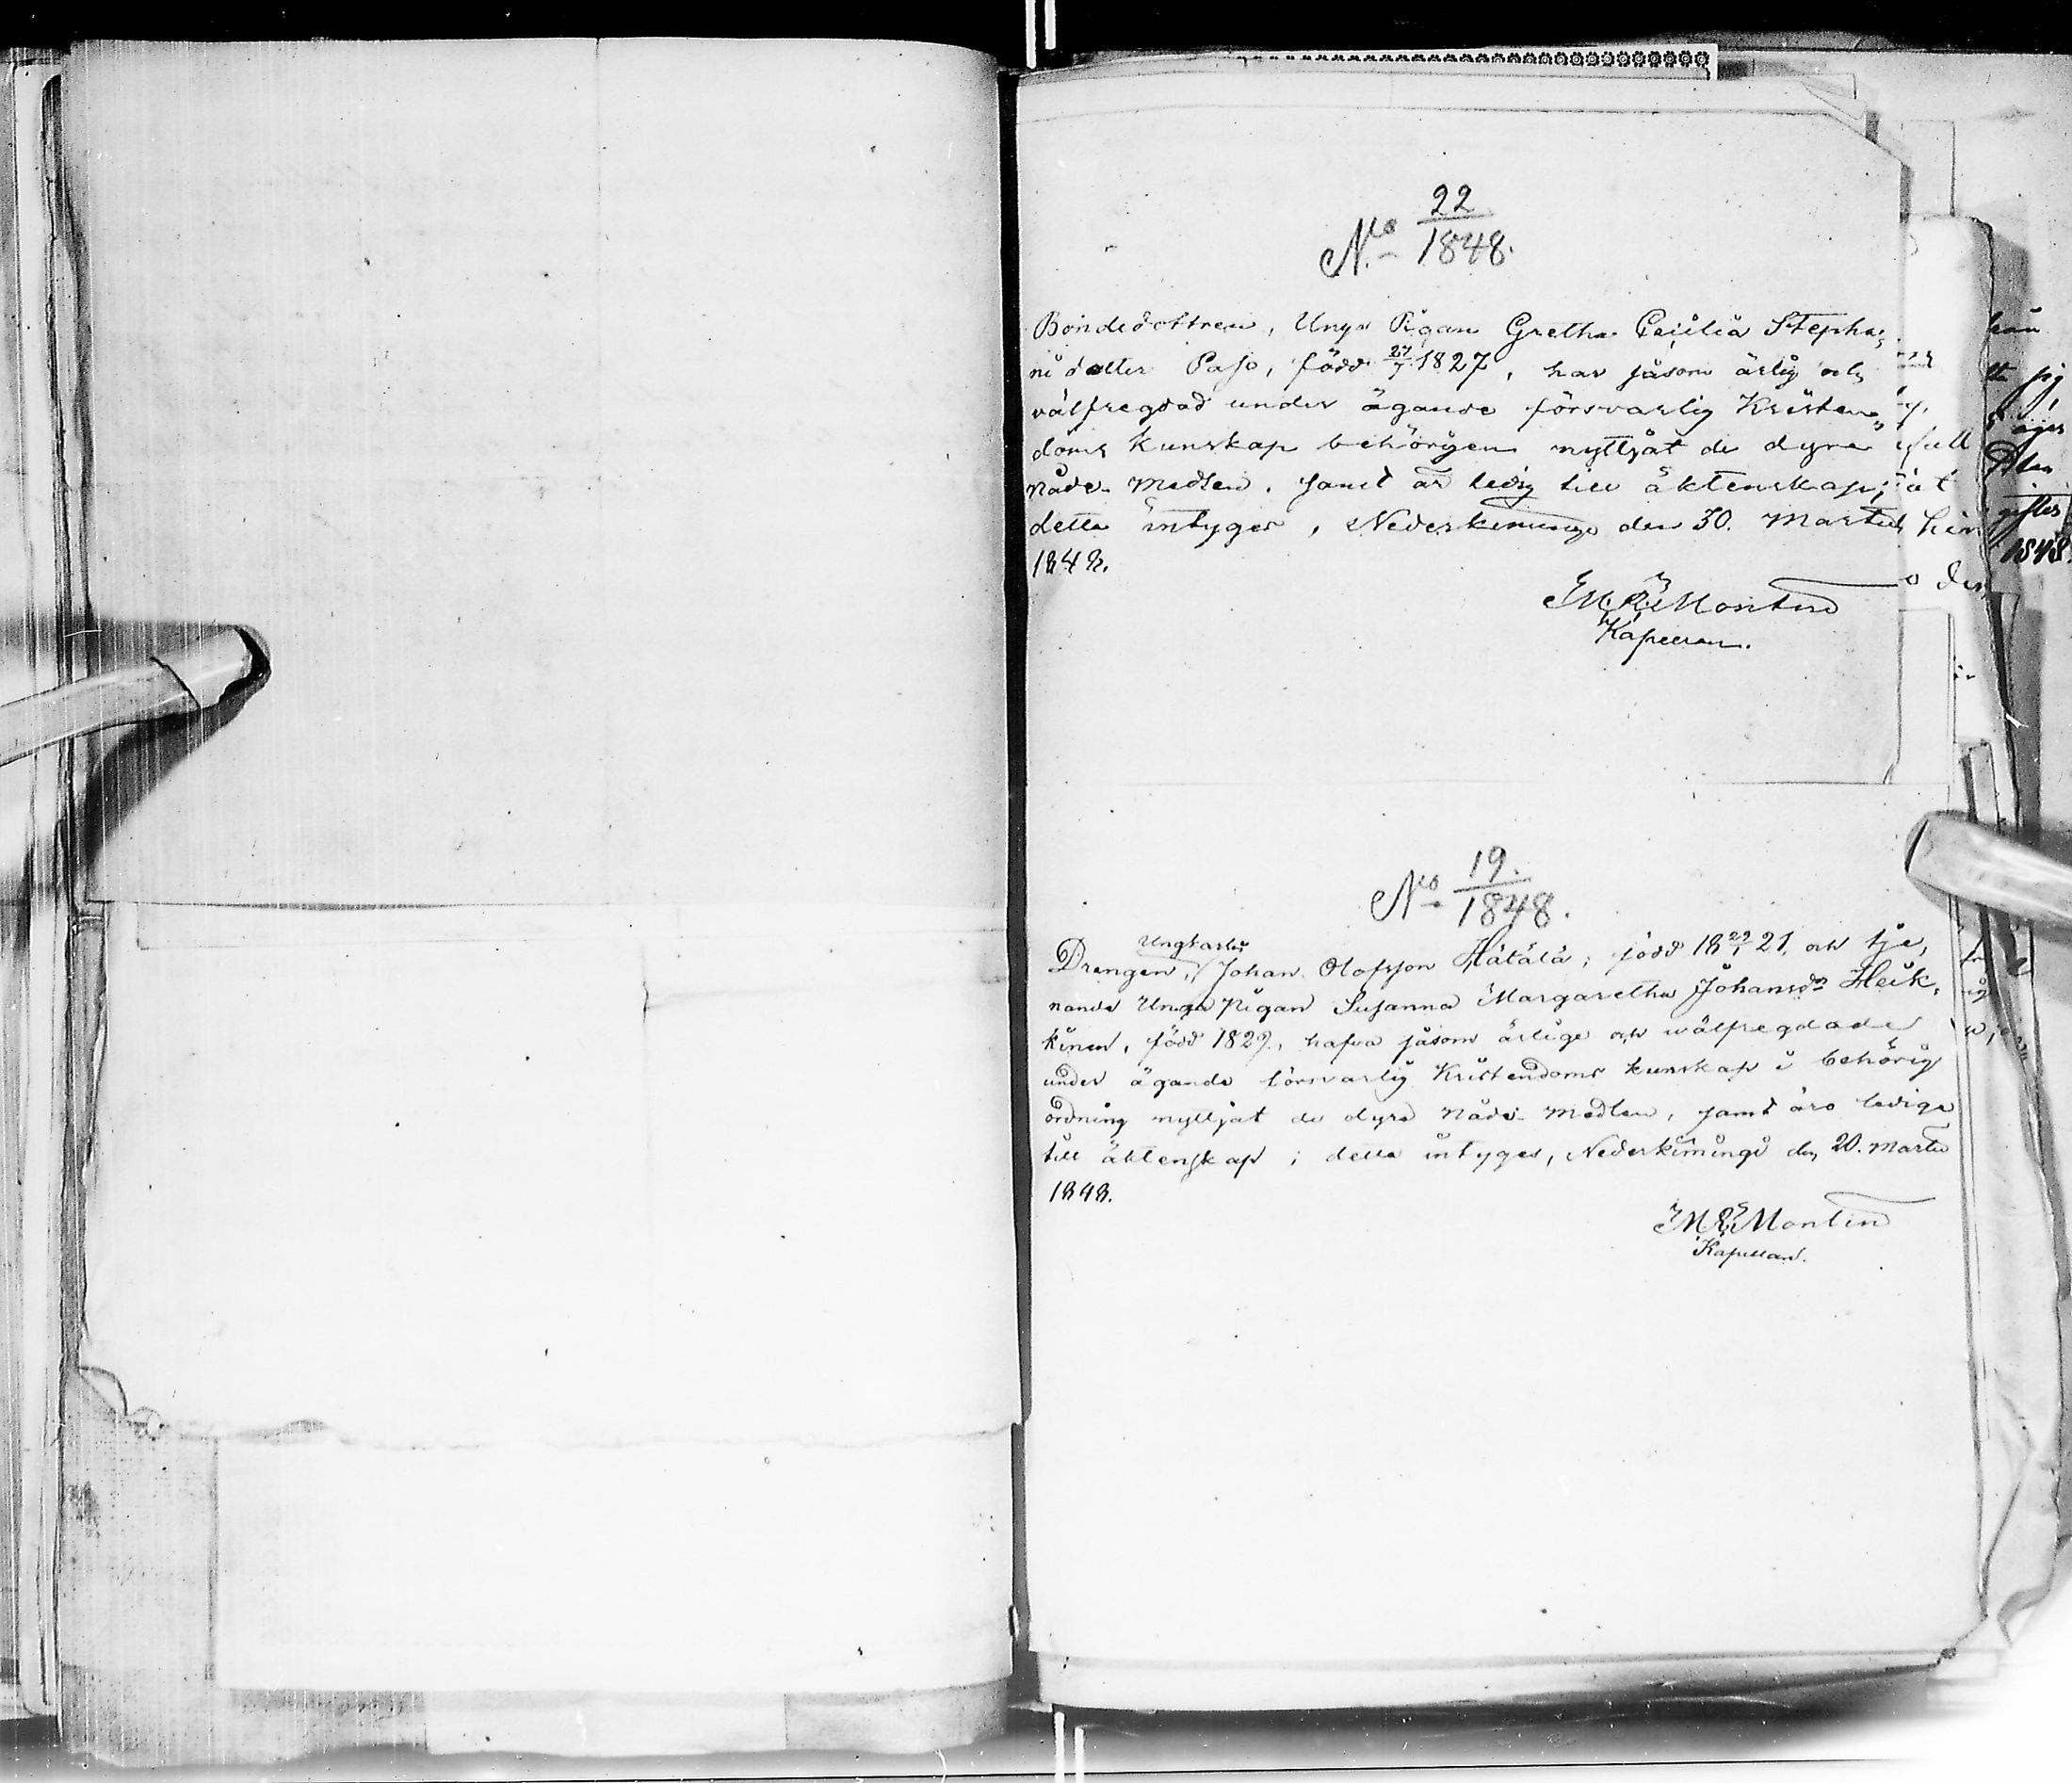 22
No 1848.
Bondedottren, Unga Pigan Gretha Cecilia Stepha,
ni dotter Paso, född 27/7 1827, har såsom ärlig och
välfregdad under ägande försvarlig Kristen„
doms kunskap behörigen nyttjat de dyra
Nåde-Medlen, samt är ledig till äktenskap;
detta intyges, Nederkimingi den 30. Martii
1848.
E M R Montin
Kapellan.
19.
No 1848.
Ungkarlen
Drengen, Johan Olofsson Hätälä, född 18 29/1 21, och tje,
nande Unga Pigan Susanna Margaretha Johansdr Heik,
kinen, född 1829, hafva såsom ärlige och wälfregdade
under ägande försvarlig Kristendoms kunskap i behörig
ordning nyttjat de dyra Nåde-Medlen, samt äro lediga
till äktenskap; detta intyges, Nederkimingi den 20. Martii
1848.
E M R Montin
Kapellan.
sig,
äger
giftes
1848.